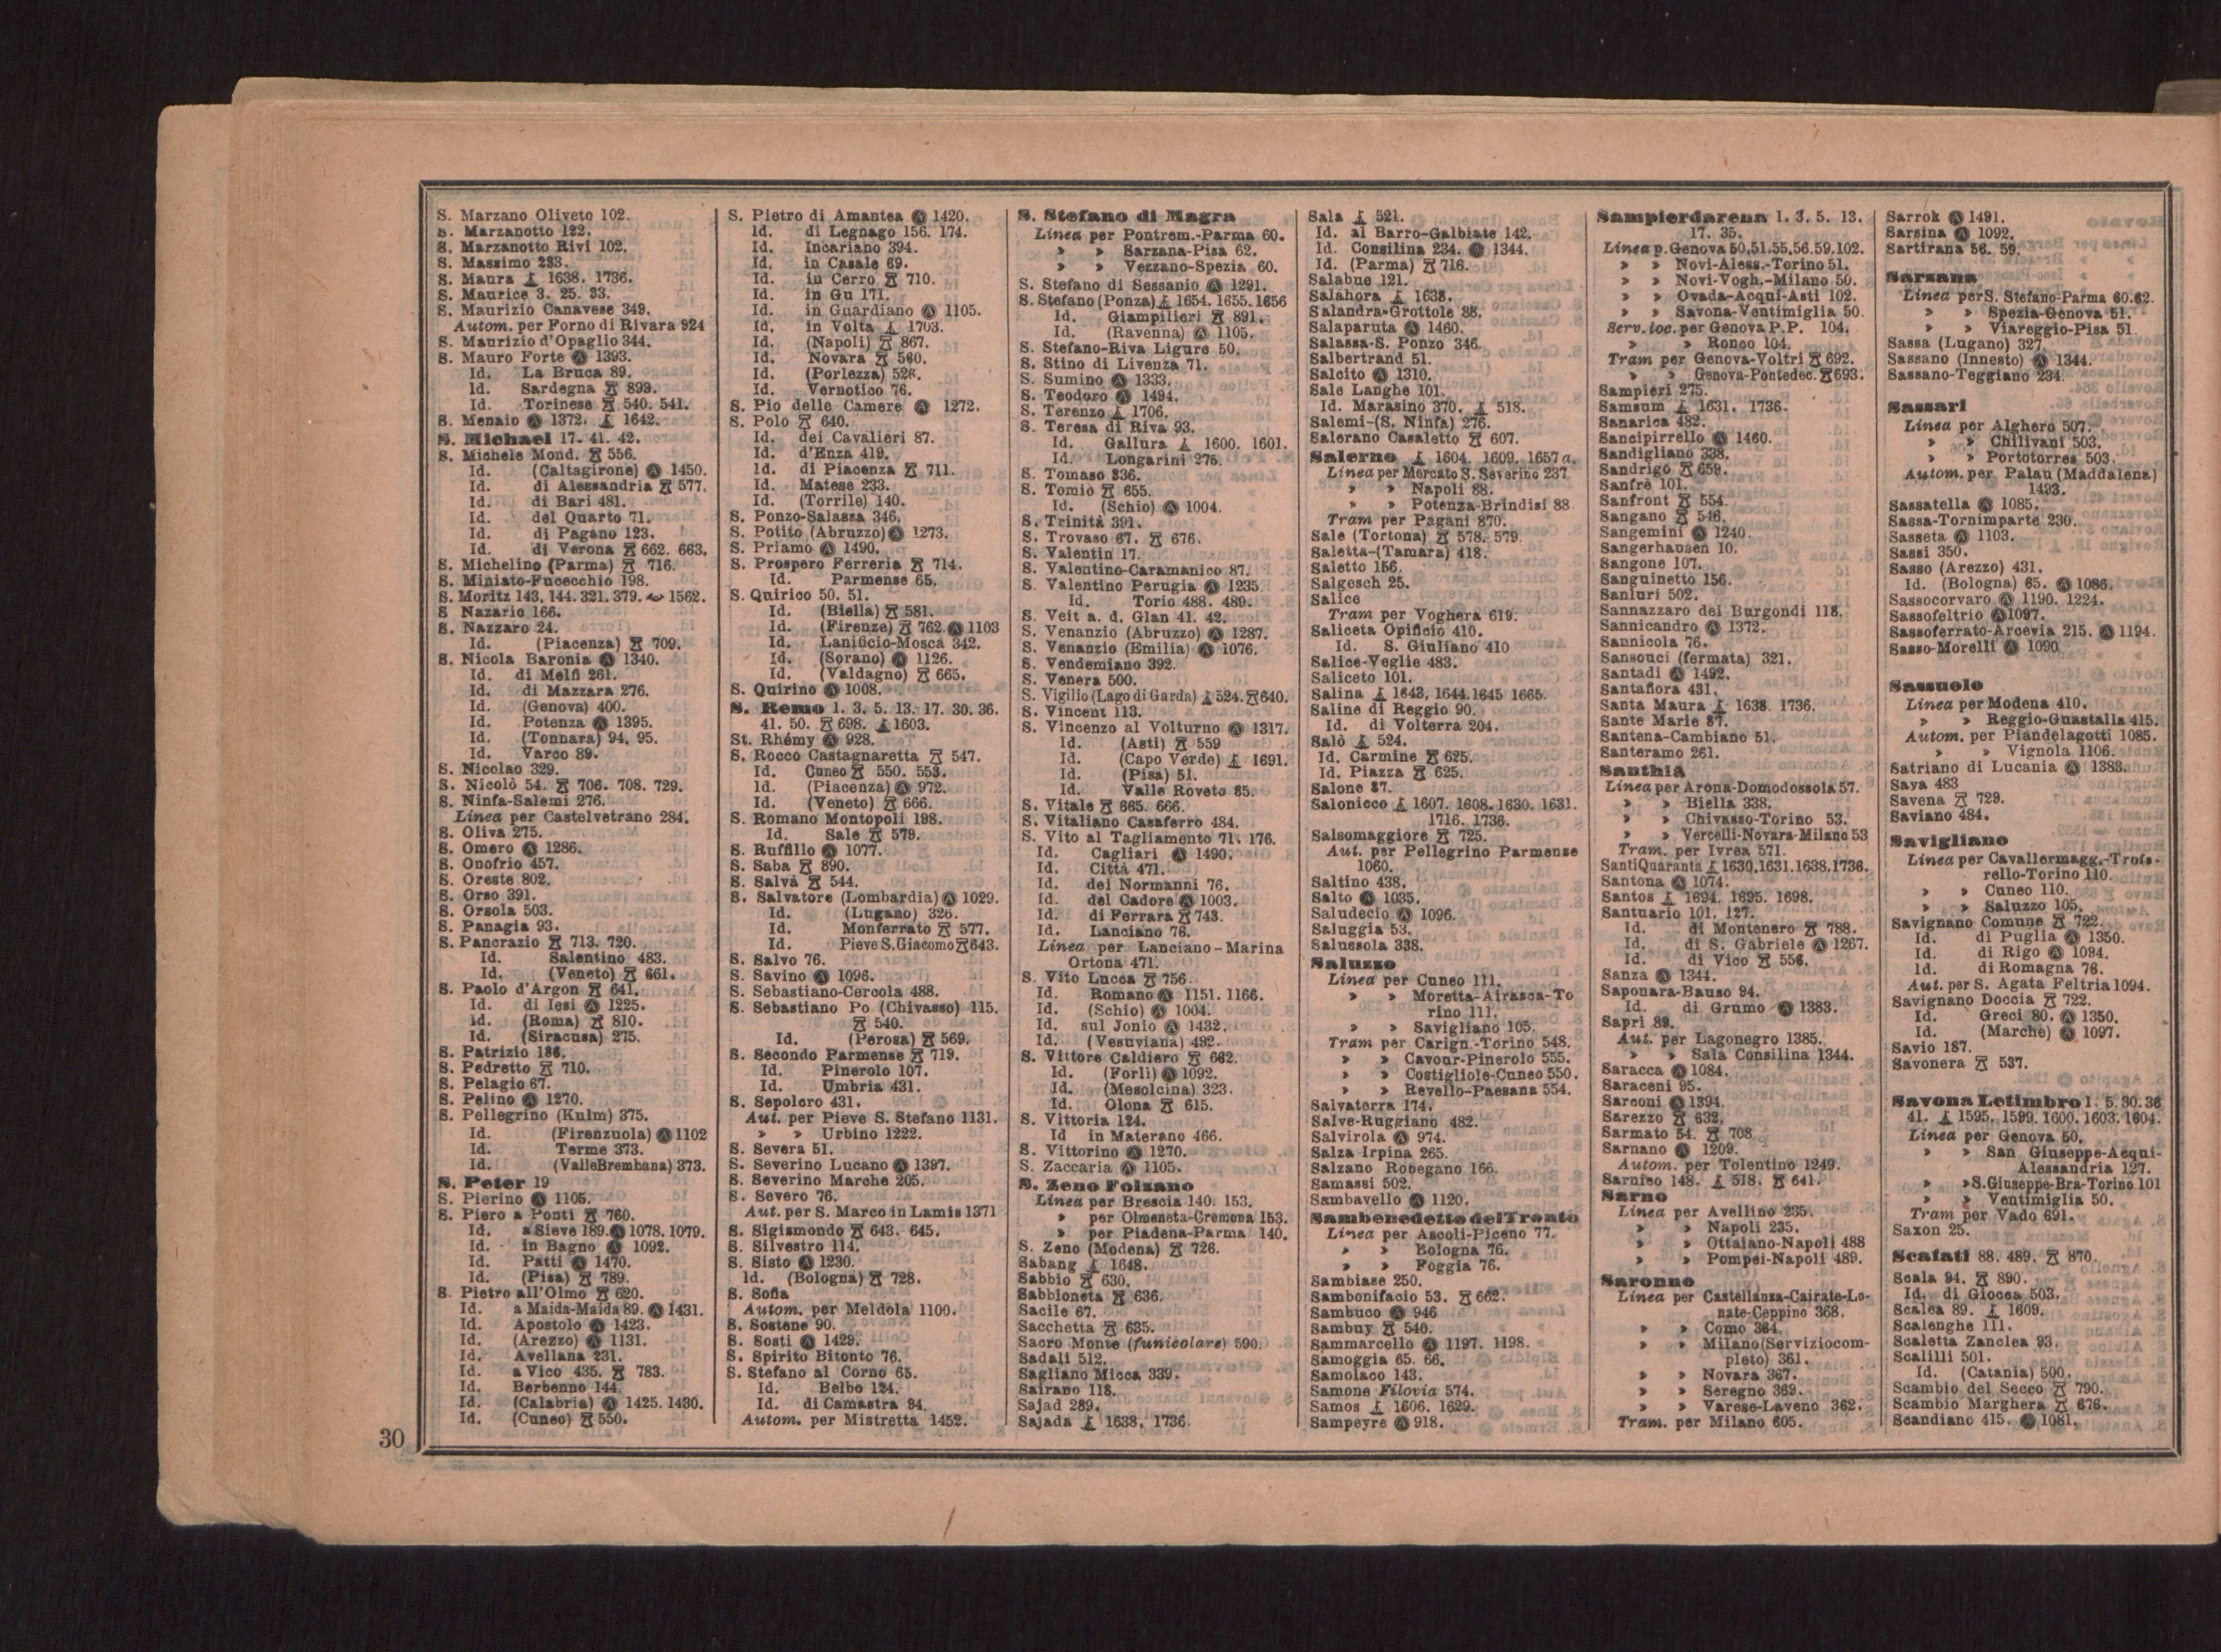 S. Marzano Oliveto 102.
S. Marzanotto 122.
S. Marzanotto Rivi 102.
S. Massimo 233.
S. Maura 1638. 1736.
S. Maurice 3. 25. 33.
S. Maurizio Canavese 349.
Autom. per Forno di Rivara 924
S. Maurizio d'Opaglio 344.
S. Mauro Forte Ⓐ 1393.
Id. La Bruca 89.
Id. Sardegna 899.
Id. Torinese 540. 541.
S. Menaio Ⓐ 1372. 1642.
S. Michael 17. 41. 42.
S. Michele Mond. 556.
Id. (Caltagirone) Ⓐ 1450.
Id. di Alessandria 577.
Id. di Bari 481.
Id. del Quarto 71.
Id. di Pagano 123.
Id. di Verona 662. 663.
S. Michelino (Parma) 716.
S. Miniato-Fucecchio 198.
S. Moritz 143. 144. 321. 379. 1562.
S Nazario 166.
S. Nazzaro 24.
Id. (Piacenza) 709.
S. Nicola Baronia Ⓐ 1340.
Id. di Melfi 261.
Id. di Mazzara 276.
Id. (Genova) 400.
Id. Potenza Ⓐ 1395.
Id. (Tonnara) 94. 95.
Id. Varco 89.
S. Nicolao 329.
S. Nicolò 54. 706. 708. 729.
S. Ninfa-Salemi 276.
Linea per Castelvetrano 284.
S. Oliva 275.
S. Omero Ⓐ 1286.
S. Onofrio 457.
S. Oreste 802.
S. Orso 391.
S. Orsola 503.
S. Panagia 93.
S. Pancrazio 713. 720.
Id. Salentino 483.
Id. (Veneto) 661.
S. Paolo d'Argon 641.
Id. di Iesi Ⓐ 1225.
Id. (Roma) 810.
Id. (Siracusa) 275.
S. Patrizio 186.
S. Pedretto 710.
S. Pelagio 67.
S. Pelino Ⓐ 1270.
S. Pellegrino (Kulm) 375.
Id. (Firenzuola) Ⓐ 1102
Id. Terme 373.
Id. (ValleBrembana) 373.
S. Peter 19
S. Pierino Ⓐ 1105.
S. Piero a Ponti 760.
Id. a Sieve 189. Ⓐ 1078. 1079.
Id. in Bagno Ⓐ 1092.
Id. Patti Ⓐ 1470.
Id. (Pisa) 789.
S. Pietro all'Olmo 620.
Id. a Maida-Maida 89. Ⓐ 1431.
Id. Apostolo Ⓐ 1423.
Id. (Arezzo) Ⓐ 1131.
Id. Avellana 231.
Id. a Vico 435. 783.
Id. Berbenno 144.
Id. (Calabria) Ⓐ 1425. 1430.
Id. (Cuneo) 550.
S. Pietro di Amantea Ⓐ 1420.
Id. di Legnago 156. 174.
Id. Incariano 394.
Id. in Casale 69.
Id. in Cerro 710.
Id. in Gu 171.
Id. in Guardiano Ⓐ 1105.
Id. in Volta 1703.
Id. (Napoli) 867.
Id. Novara 560.
Id. (Porlezza) 526.
Id. Vernotico 76.
S. Pio delle Camere Ⓐ 1272.
S. Polo 640.
Id. dei Cavalieri 87.
Id. d'Enza 419.
Id. di Piacenza 711.
Id. Matese 233.
Id. (Torrile) 140.
S. Ponzo-Salassa 346.
S. Potito (Abruzzo) Ⓐ 1273.
S. Priamo Ⓐ 1490.
S. Prospero Ferreria 714.
Id. Parmense 65.
S. Quirico 50. 51.
Id. (Biella) 581.
Id. (Firenze) 762. Ⓐ 1103
Id. Lanificio-Mosca 342.
Id. (Sorano) Ⓐ 1126.
Id. (Valdagno) 665.
S. Quirino Ⓐ 1008.
S. Remo 1. 3. 5. 13. 17. 30. 36.
41. 50. 698. 1603.
St. Rhémy Ⓐ 928.
S. Rocco Castagnaretta 547.
Id. Cuneo 550. 553.
Id. (Piacenza) Ⓐ 972.
Id. (Veneto) 666.
S. Romano Montopoli 198.
Id. Sale 579.
S. Ruffillo Ⓐ 1077.
S. Saba 890.
S. Salvà 544.
S. Salvatore (Lombardia) Ⓐ 1029.
Id. (Lugano) 326.
Id. Monferrato 577.
Id. Pieve S. Giacomo 643.
S. Salvo 76.
S. Savino Ⓐ 1096.
S. Sebastiano-Cercola 488.
S. Sebastiano Po (Chivasso) 115.
540.
Id. (Perosa) 569.
S. Secondo Parmense 719.
Id. Pinerolo 107.
Id. Umbria 431.
S. Sepolcro 431.
Aut. per Pieve S. Stefano 1131.
» » Urbino 1222.
S. Severa 51.
S. Severino Lucano Ⓐ 1397.
S. Severino Marche 205.
S. Severo 76.
Aut. per S. Marco in Lamis 1371
S. Sigismondo 643. 645.
S. Silvestro 114.
S. Sisto Ⓐ 1230.
Id. (Bologna) 728.
S. Sofia
Autom. per Meldola 1100.
S. Sostene 90.
S. Sosti Ⓐ 1429.
S. Spirito Bitonto 76.
S. Stefano al Corno 65.
Id. Belbo 124.
Id. di Camastra 94.
Autom. per Mistretta 1452.
S. Stefano di Magra
Linea per Pontrem.-Parma 60.
» » Sarzana-Pisa 62.
» » Vezzano-Spezia 60.
S. Stefano di Sessanio Ⓐ 1291.
S. Stefano (Ponza) 1654. 1655. 1656
Id. Giampilieri 891.
Id. (Ravenna) Ⓐ 1105.
S. Stefano-Riva Ligure 50.
S. Stino di Livenza 71.
S. Sumino Ⓐ 1333.
S. Teodoro Ⓐ 1494.
S. Terenzo 1706.
S. Teresa di Riva 93.
Id. Gallura 1600. 1601.
Id. Longarini 275.
S. Tomaso 336.
S. Tomiò 655.
Id. (Schio) Ⓐ 1004.
S. Trinità 391.
S. Trovaso 67. 676.
S. Valentin 17.
S. Valentino-Caramanico 87.
S. Valentino Perugia Ⓐ 1235
Id. Torio 488. 489.
S. Veit a. d. Glan 41. 42.
S. Venanzio (Abruzzo) Ⓐ 1287.
S. Venanzio (Emilia) Ⓐ 1076.
S. Vendemiano 392.
S. Venera 500.
S. Vigilio (Lago di Garda) 524. 640.
S. Vincent 113.
S. Vincenzo al Volturno Ⓐ 1317.
Id. (Asti) 559
Id. (Capo Verde) 1691.
Id. (Pisa) 51.
Id. Valle Roveto 85.
S. Vitale 665. 666.
S. Vitaliano Casaferro 484.
S. Vito al Tagliamento 71. 176.
Id. Cagliari Ⓐ 1490.
Id. Città 471.
Id. dei Normanni 76.
Id. del Cadore Ⓐ 1003.
Id. di Ferrara 743.
Id. Lanciano 76.
Linea per Lanciano-Marina
Ortona 471.
S. Vito Lucca 756.
Id. Romano Ⓐ 1151. 1166.
Id. (Schio) Ⓐ 1004.
Id. sul Jonio Ⓐ 1432.
Id. (Vesuviana) 492.
S. Vittore Caldiero 662.
Id. (Forlì) Ⓐ 1092.
Id. (Mesolcina) 323.
Id. Olona 615.
S. Vittoria 124.
Id in Materano 466.
S. Vittorino Ⓐ 1270.
S. Zaccaria Ⓐ 1105.
S. Zeno Folzano
Linea per Brescia 140. 153.
» per Olmeneta-Cremona 153.
» per Piadena-Parma 140.
S. Zeno (Modena) 726.
Sabang 1648.
Sabbio 630.
Sabbioneta 636.
Sacile 67.
Sacchetta 635.
Sacro Monte (funicolare) 590.
Sadali 512.
Sagliano Micca 339.
Sairano 118.
Sajad 289.
Sajada 1638. 1736.
Sala 521.
Id. al Barro-Galbiate 142.
Id. Consilina 234. Ⓐ 1344.
Id. (Parma) 716.
Salabue 121.
Salahora 1638.
Salandra-Grottole 88.
Salaparuta Ⓐ 1460.
Salassa-S. Ponzo 346.
Salbertrand 51.
Salcito Ⓐ 1310.
Sale Langhe 101.
Id. Marasino 370. 518.
Salemi-(S. Ninfa) 276.
Salerano Casaletto 607.
Salerno 1604. 1609. 1657 a.
Linea per Mercato S. Severino 237
» » Napoli 88.
» » Potenza-Brindisi 88
Tram per Pagani 870.
Sale (Tortona) 578. 579.
Saletta-(Tamara) 418.
Saletto 156.
Salgesch 25.
Salice
Tram per Voghera 619.
Saliceta Opificio 410.
Id. S. Giuliano 410
Salice-Veglie 483.
Saliceto 101.
Salina 1643. 1644. 1645 1665.
Saline di Reggio 90.
Id. di Volterra 204.
Salò 524.
Id. Carmine 625.
Id. Piazza 625.
Salone 87.
Salonicco 1607. 1608. 1630. 1631.
1716. 1736.
Salsomaggiore 725.
Aut. per Pellegrino Parmense
1060.
Saltino 438.
Salto Ⓐ 1035.
Saludecio Ⓐ 1096.
Saluggia 53.
Salussola 338.
Saluzzo
Linea per Cuneo 111.
» » Moretta-Airasca-To
rino 111.
» » Savigliano 105.
Tram per Carign.-Torino 548.
» » Cavour-Pinerolo 555.
» » Costigliole-Cuneo 550.
» » Revello-Paesana 554.
Salvaterra 174.
Salve-Ruggiano 482.
Salvirola Ⓐ 974.
Salza Irpina 265.
Salzano Robegano 166.
Samassi 502.
Sambavello Ⓐ 1120.
Sambenedetto del Tronto
Linea per Ascoli-Piceno 77.
» » Bologna 76.
» » Foggia 76.
Sambiase 250.
Sambonifacio 53. 662.
Sambuco Ⓐ 946
Sambuy 540.
Sammarcello Ⓐ 1197. 1198.
Samoggia 65. 66.
Samolaco 143.
Samone Filovia 574.
Samos 1606. 1629.
Sampeyre Ⓐ 918.
Sampierdarena 1. 3. 5. 13.
17. 35.
Linea p. Genova 50.51.55.56.59.102.
» » Novi-Aless.-Torino 51.
» » Novi-Vogh.-Milano 50.
» » Ovada-Acqui-Asti 102.
» » Savona-Ventimiglia 50.
Serv. loc. per Genova P.P. 104.
» » Ronco 104.
Tram per Genova-Voltri 692.
» » Genova-Pontedec. 693.
Sampieri 275.
Samsum 1631. 1736.
Sanarica 482.
Sancipirrello Ⓐ 1460.
Sandigliano 338.
Sandrigo 659.
Sanfrè 101.
Sanfront 554.
Sangano 546.
Sangemini Ⓐ 1240.
Sangerhausen 10.
Sangone 107.
Sanguinetto 156.
Sanluri 502.
Sannazzaro dei Burgondi 118.
Sannicandro Ⓐ 1372.
Sannicola 76.
Sansouci (fermata) 321.
Santadi Ⓐ 1492.
Santafiora 431.
Santa Maura 1638. 1736.
Sante Marie 87.
Santena-Cambiano 51.
Santeramo 261.
Santhià
Linea per Arona-Domodossola 57.
» » Biella 338.
» » Chivasso-Torino 53.
» » Vercelli-Novara-Milano 53
Tram. per Ivrea 571.
Santi Quaranta 1630.1631.1638.1736.
Santona Ⓐ 1074.
Santos 1694. 1695. 1698.
Santuario 101. 127.
Id. di Montenero 788.
Id. di S. Gabriele Ⓐ 1267.
Id. di Vico 556.
Sanza Ⓐ 1344.
Saponara-Bauso 94.
Id. di Grumo Ⓐ 1383.
Sapri 89.
Aut. per Lagonegro 1385.
» » Sala Consilina 1344.
Saracca Ⓐ 1084.
Saraceni 95.
Sarconi Ⓐ 1394.
Sarezzo 632.
Sarmato 54. 708
Sarnano Ⓐ 1209.
Autom. per Tolentino 1249.
Sarnico 148. 518. 641.
Sarno
Linea per Avellino 235.
» » Napoli 235.
» » Ottaiano-Napoli 488
» » Pompei-Napoli 489.
Saronno
Linea per Castellanza-Cairate-Lo-
nate-Ceppino 368.
» » Como 364.
» » Milano (Servizio com-
pleto) 361.
» » Novara 367.
» » Seregno 369.
» » Varese-Laveno 362.
Tram. per Milano 605.
Sarrok Ⓐ 1491.
Sarsina Ⓐ 1092.
Sartirana 56. 59.
Sarzana
Linea per S. Stefano-Parma 60.62.
» » Spezia-Genova 51.
» » Viareggio-Pisa 51
Sassa (Lugano) 327.
Sassano (Innesto) Ⓐ 1344.
Sassano-Teggiano 234.
Sassari
Linea per Alghero 507.
» » Chilivani 503.
» » Portotorres 503.
Autom. per Palau (Maddalena)
1493.
Sassatella Ⓐ 1085.
Sassa-Tornimparte 230.
Sasseta Ⓐ 1103.
Sassi 350.
Sasso (Arezzo) 431.
Id. (Bologna) 65. Ⓐ 1086.
Sassocorvaro Ⓐ 1190. 1224.
Sassofeltrio Ⓐ 1097.
Sassoferrato-Arcevia 215. Ⓐ 1194.
Sasso-Morelli Ⓐ 1090
Sassuolo
Linea per Modena 410.
» » Reggio-Guastalla 415.
Autom. per Piandelagotti 1085.
» » Vignola 1106.
Satriano di Lucania Ⓐ 1383.
Sava 483
Savena 729.
Saviano 484.
Savigliano
Linea per Cavallermagg.-Trofa-
rello-Torino 110.
» » Cuneo 110.
» » Saluzzo 105.
Savignano Comune 722.
Id. di Puglia Ⓐ 1350.
Id. di Rigo Ⓐ 1094.
Id. di Romagna 76.
Aut. per S. Agata Feltria 1094.
Savignano Doccia 722.
Id. Greci 80. Ⓐ 1350.
Id. (Marche) Ⓐ 1097.
Savio 187.
Savonera 537.
Savona Letimbro 1. 5. 30. 36
41. 1595. 1599. 1600. 1603. 1604.
Linea per Genova 50.
» » San Giuseppe-Acqui-
Alessandria 127.
» » S. Giuseppe-Bra-Torino 101
» » Ventimiglia 50.
Tram per Vado 691.
Saxon 25.
Scafati 88. 489. 870.
Scala 94. 890.
Id. di Giocca 503.
Scalea 89. 1609.
Scalenghe 111.
Scaletta Zanclea 93.
Scalilli 501.
Id. (Catania) 500.
Scambio del Secco 790.
Scambio Marghera 676.
Scandiano 415. Ⓐ 1081.
30